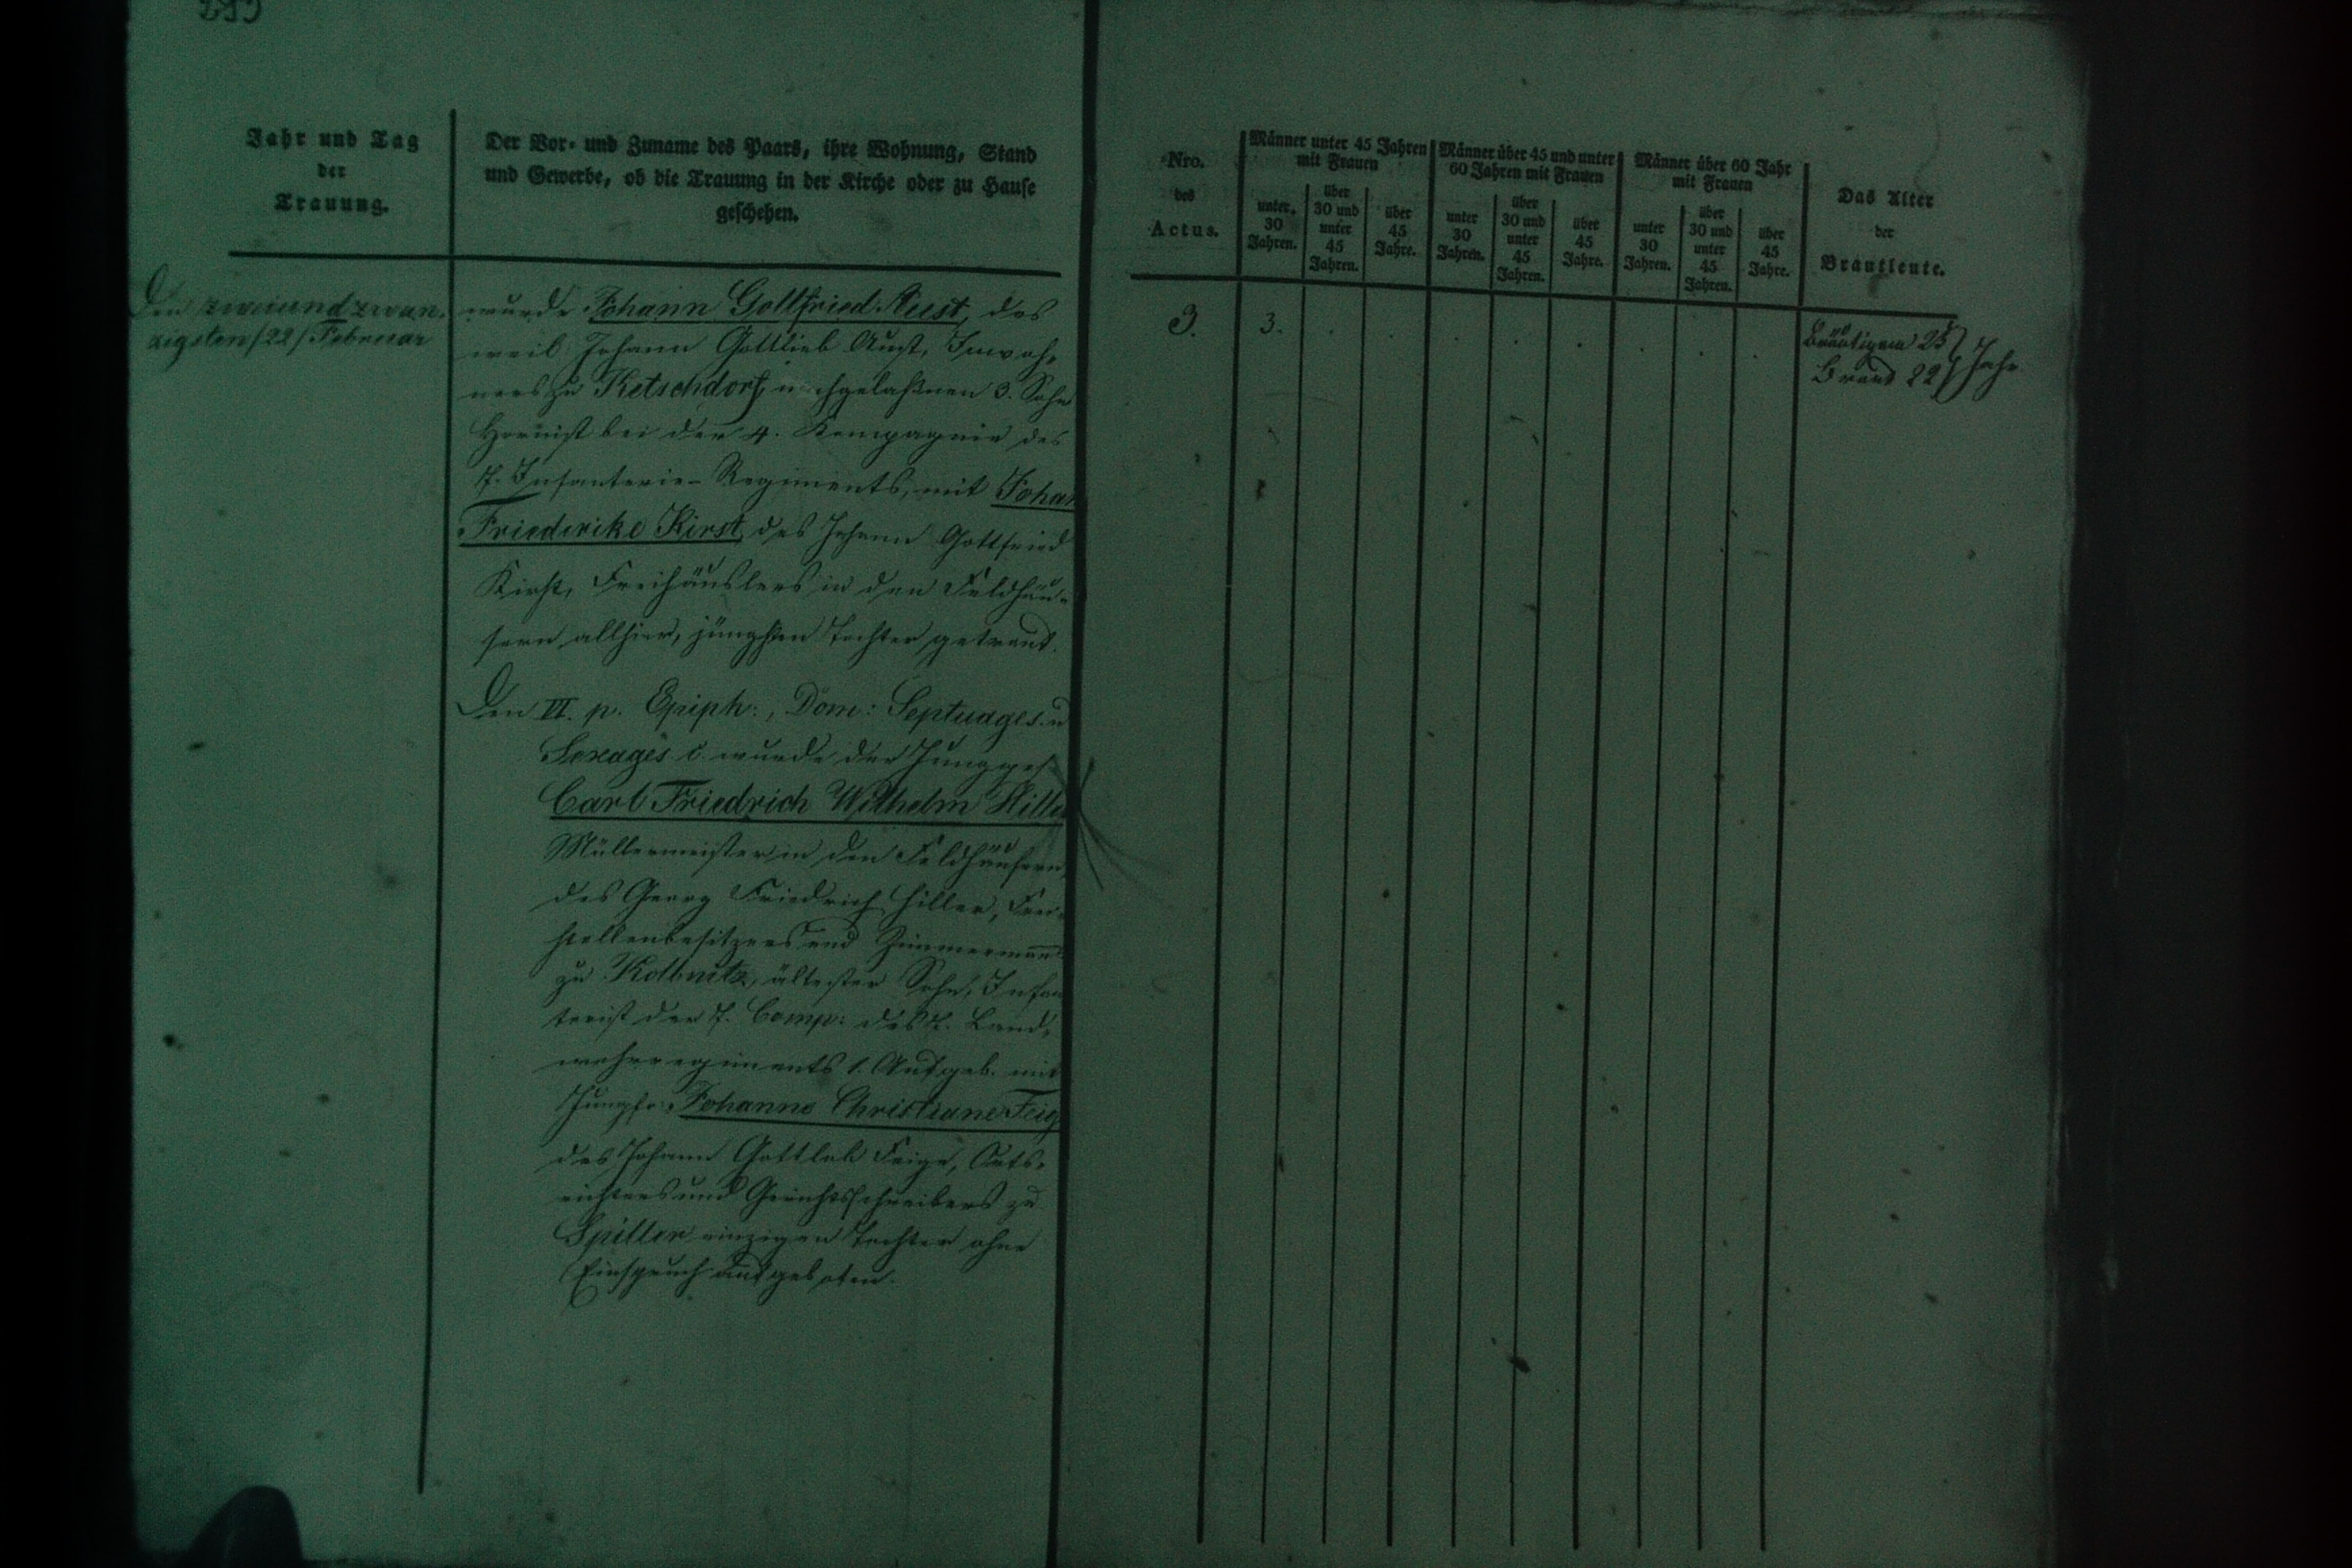 Jahr und Tag
der
Trauung.
Der Vor- und Zuname des Paars, ihre Wohnung, Stand
und Gewerbe, ob die Trauung in der Kirche oder zu Hause
geschehen.
Den zweiundzwan-
zigsten /22/ Februar
wurde Johann Gottfried Aust, des
weil. Johann Gottlieb Aust, Inwoh-
ners zu Ketschdorf, nachgelaßnen 3. Sohn
Hornist bei der 4. Kompagnie des
7. Infanterie-Regiments, mit Johan
Friederike Kirst, des Johann Gottfried
Kirst, Freihäuslers in den Feldhäu-
sern allhier, jüngsten Tochter getraut.
Den III. p. Epiph:, Dom: Septuages. u
Sexages c. wurde der Jungges
Carl Friedrich Wilhelm Hille
Müllermeister in den Feldhäusern,
des Georg Friedrich Hiller, Frei-
stellenbesitzers und Zimmermann
zu Kolbnitz, ältester Sohn, Infan
terist der 7. Comp: des 7. Land-
wehrregiments 1. Aufgeb. mit
Jungfr: Johanne Christiane Feig
des Johann Gottlob Feige, Orts-
richters und Gerichtsschreibers zu
Spiller einzigen Tochter ohne
Einspruch aufgeboten.
Nro.
des
Actus.
Männer unter 45 Jahren
mit Frauen
unter
30
Jahren.
über
30 und
unter
45
Jahren.
über
45
Jahre.
Männer über 45 und unter
60 Jahren mit Frauen
unter
30
Jahren.
über
30 und
unter
45
Jahren.
über
45
Jahre.
Männer über 60 Jahr
mit Frauen
unter
30
Jahren.
über
30 und
unter
45
Jahren.
über
45
Jahre.
Das Alter
der
Brautleute.
3.
3.
Bräutigam 25
Braut 22
Jahr